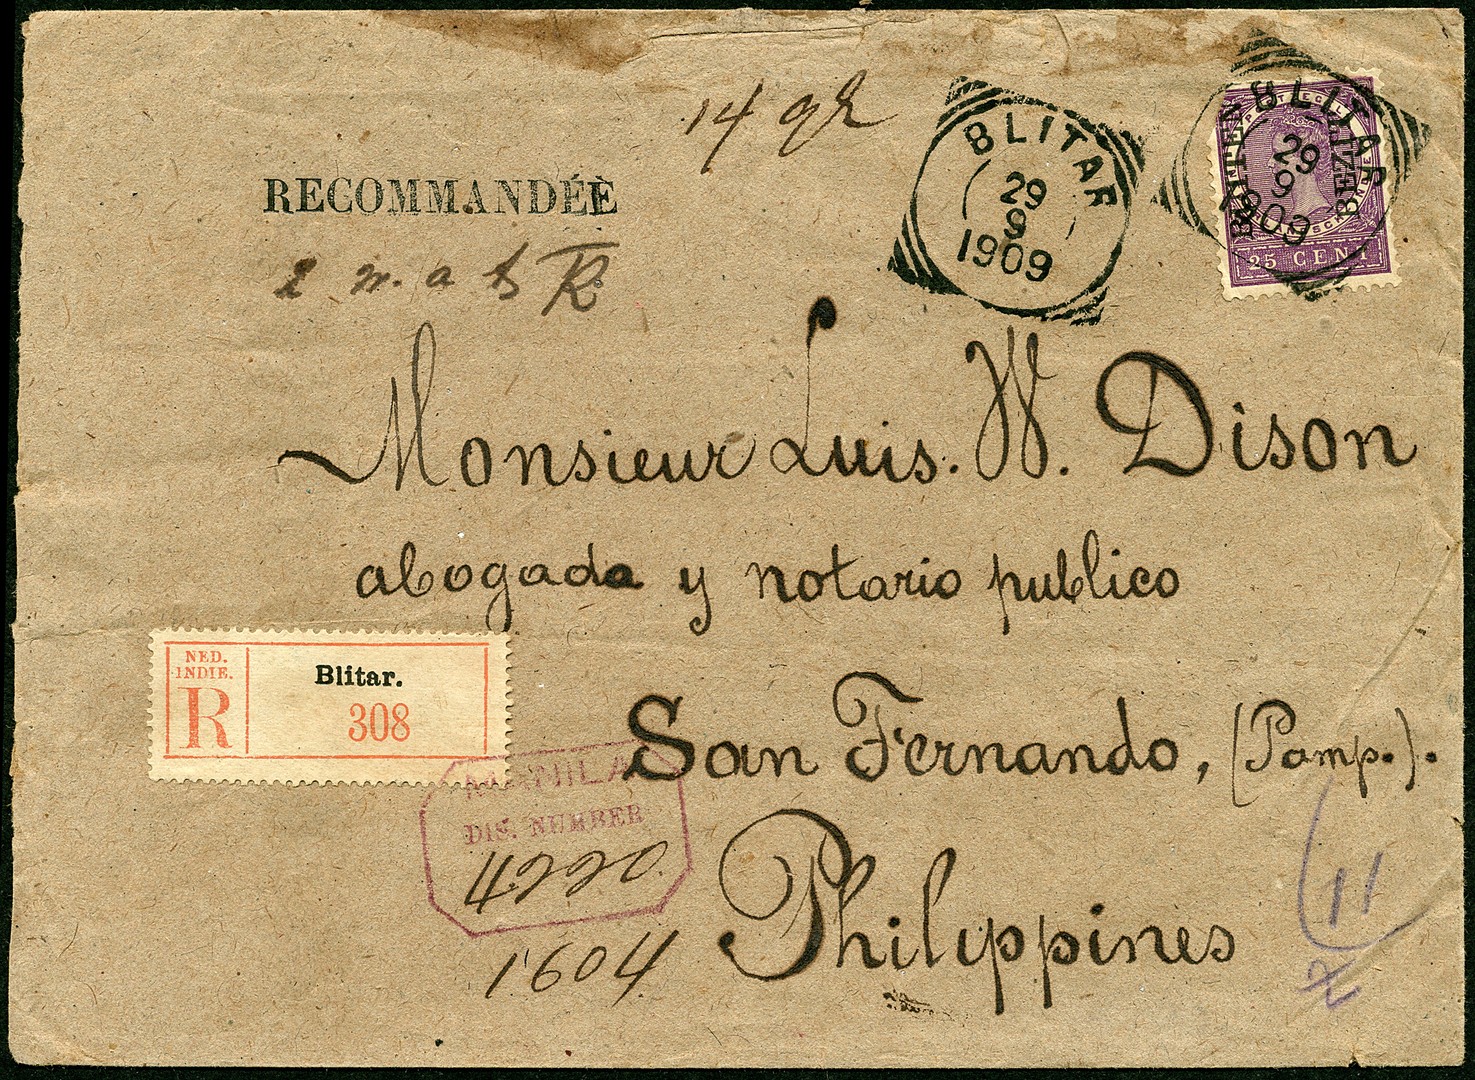 14 gr
RECOMMANDÉE
R
BLITAR
29
9
1909
BLITAR
29
9
1909
BUITEN
BEZIT
25 CENT
Monsieur Luis. W. Dison
abogada y notario publico
San Fernando, (Pamp.).
Philippines
NED.
INDIE.
R
Blitar.
308
MANILA
DIS. NUMBER
11